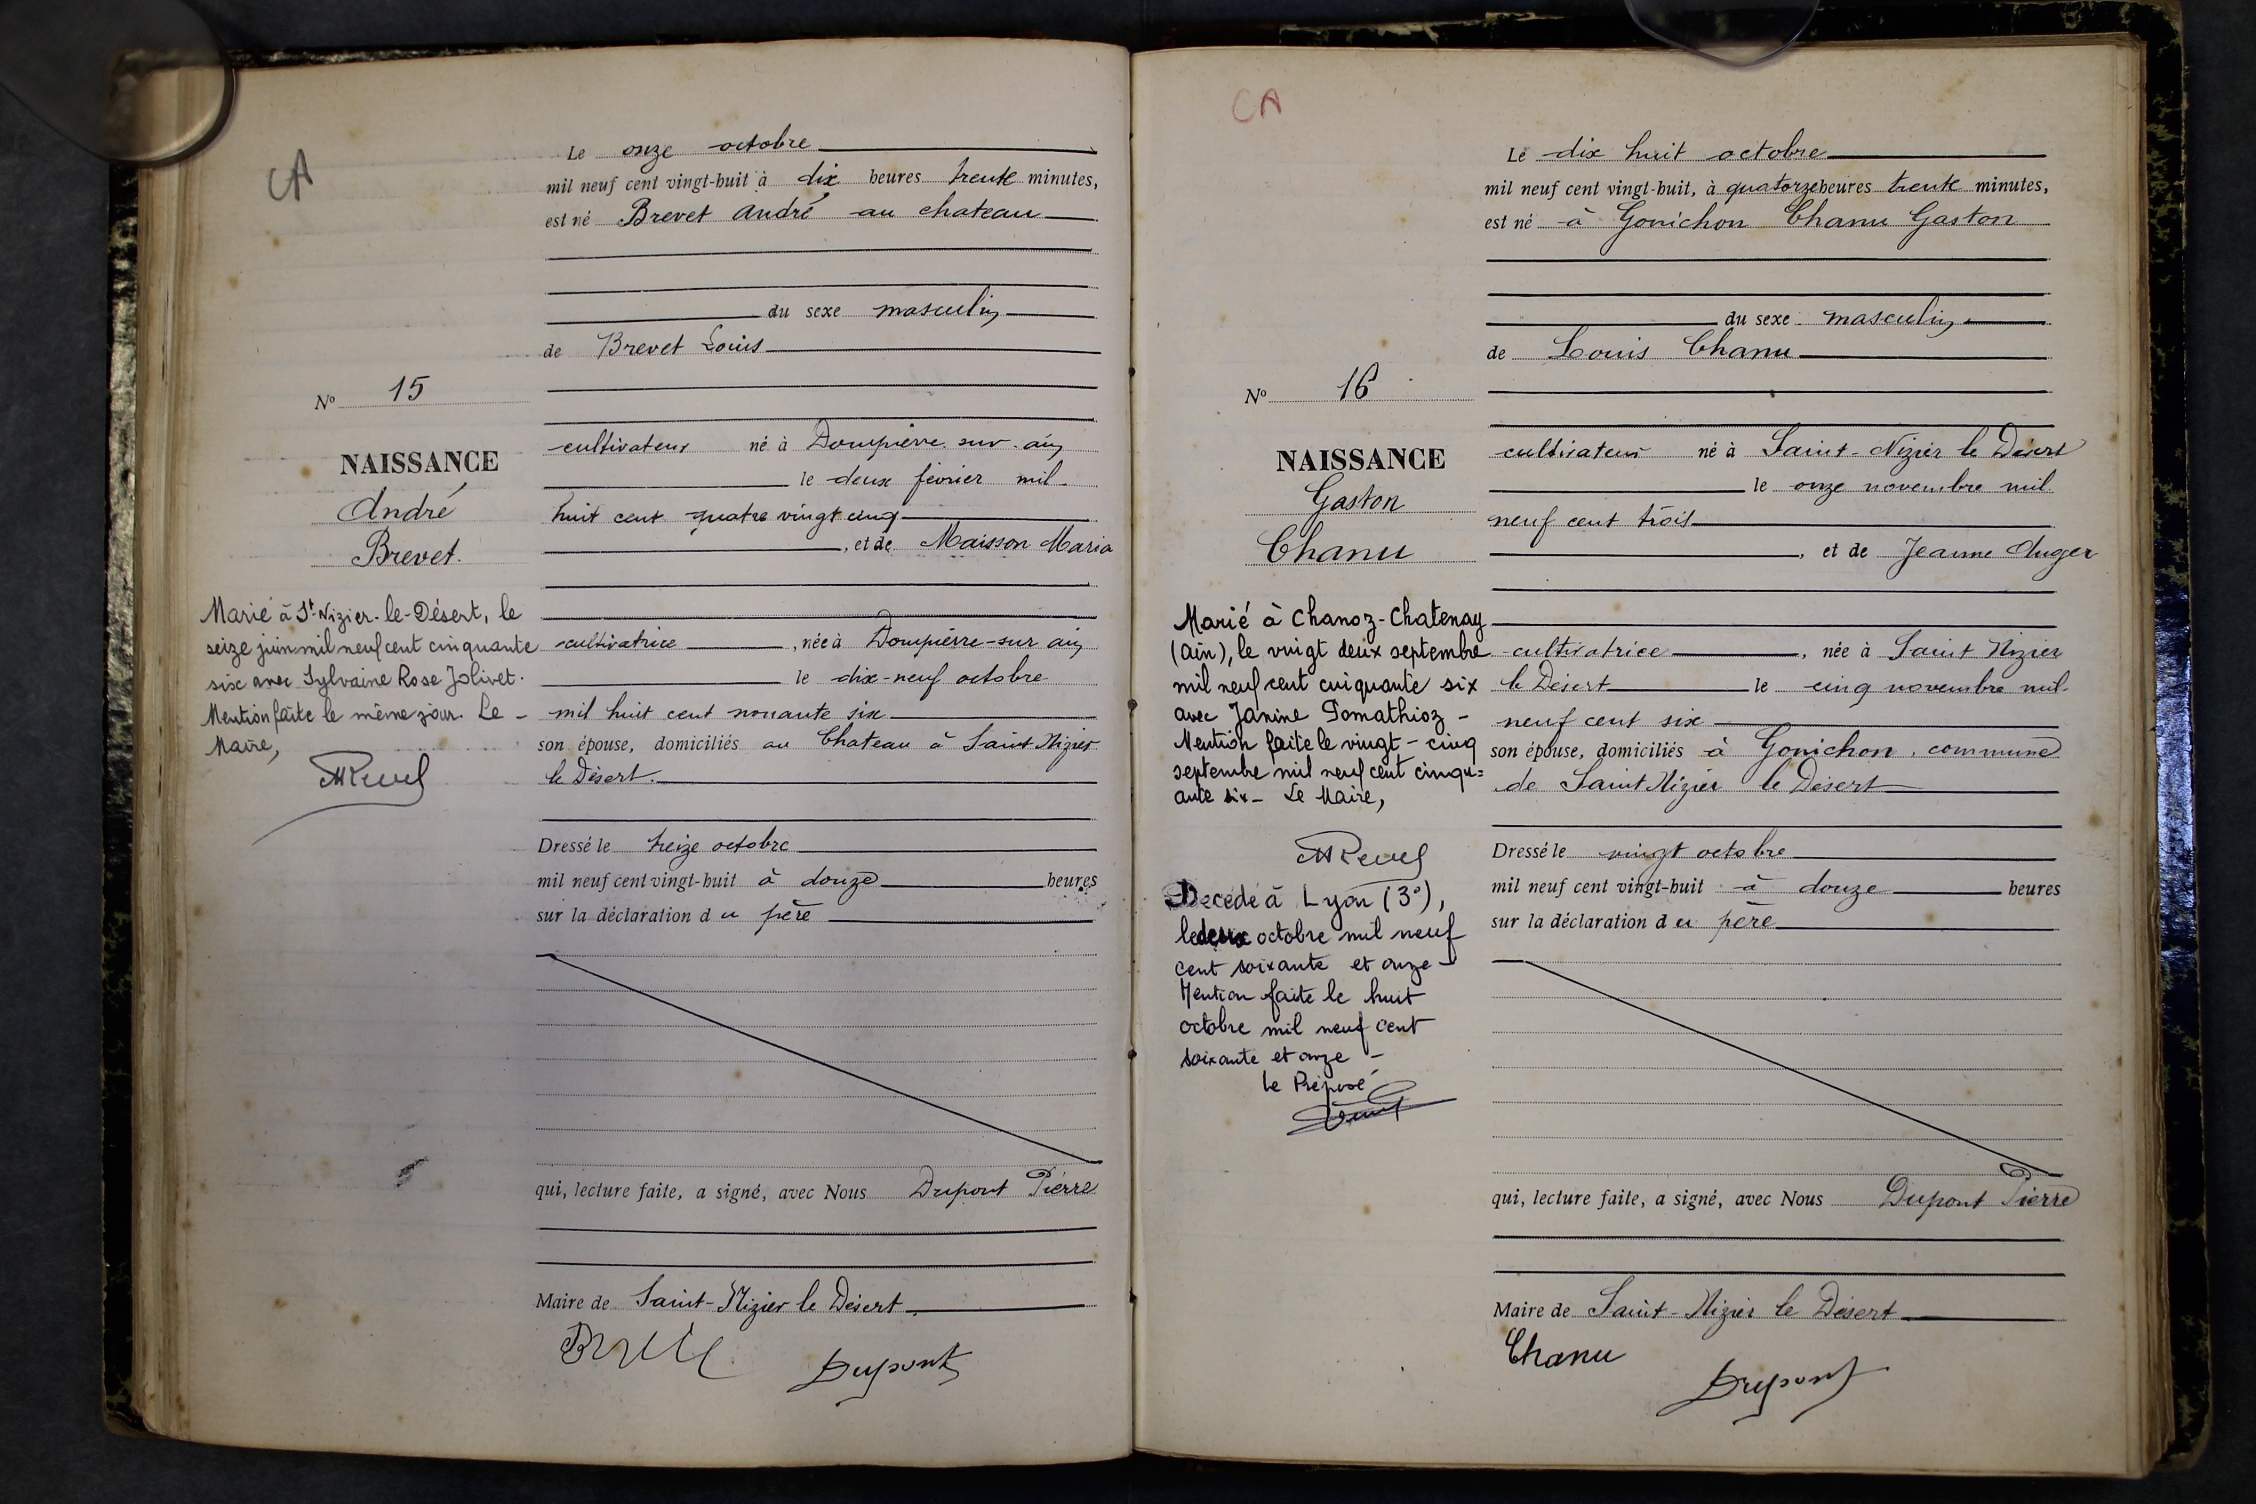 CA
Le onze octobre
mil neuf cent vingt-huit à dix heures trente minutes,
est né Brevet André au chateau
du sexe masculin
de Brevet Louis
Nº 15
NAISSANCE
André
Brevet.
cultivateur né à Dompierre sur ain
le deux février mil
huit cent quatre vingt cinq
, et de Maisson Maria
cultivatrice , née à Dompierre-sur ain
le dix-neuf octobre
mil huit cent nonante six
son épouse, domiciliés au Chateau à Saint Nizier
le Désert.
Marié à St-Nizier-le-Désert, le
seize juin mil neuf cent cinquante
six avec Sylvaine Rose Jolivet.
Mention faite le même jour. Le
Maire,
Dressé le treize octobre
mil neuf cent vingt-huit à douze heures
sur la déclaration du père
qui, lecture faite, a signé, avec Nous Dupont Pierre
Maire de Saint-Nizier le Désert
Dupont
CA
Le dix huit octobre
mil neuf cent vingt-huit, à quatorze heures trente minutes,
est né à Gonichon Chanu Gaston
du sexe masculin
de Louis Chanu
Nº 16
NAISSANCE
Gaston
Chanu
cultivateur né à Saint-Nizier le Désert
le onze novembre mil
neuf cent trois
, et de Jeanne Auger
cultivatrice , née à Saint Nizier
le Désert le cinq novembre mil
neuf cent six
son épouse, domiciliés à Gonichon, commune
de Saint Nizier le Désert
Marié à Chanoz-Chatenay
(Ain), le vingt deux septembre
mil neuf cent cinquante six
avec Janine Pomathioz -
Mention faite le vingt-cinq
septembre mil neuf cent cinqu=
ante six - Le Maire,
Décédé à Lyon (3º),
le deux octobre mil neuf
cent soixante et onze -
Mention faite le huit
octobre mil neuf cent
soixante et onze -
Le Préposé
Dressé le vingt octobre
mil neuf cent vingt-huit à douze heures
sur la déclaration du père
qui, lecture faite, a signé, avec Nous Dupont Pierre
Maire de Saint-Nizier le Désert
Chanu
Dupont